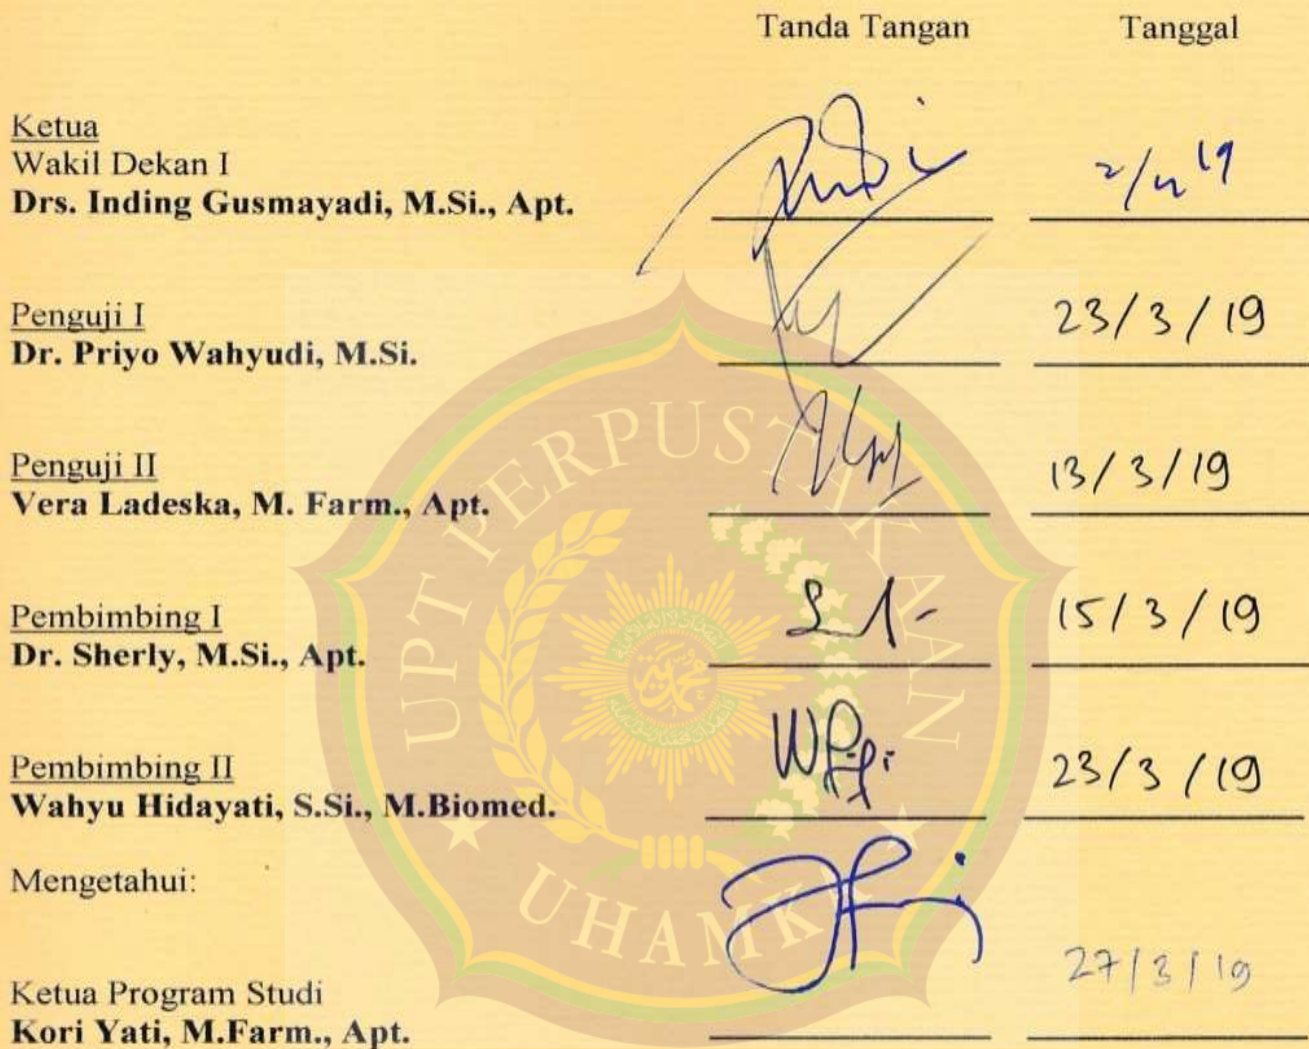 Tanda Tangan Tanggal
Ketua
Wakil Dekan I
Drs. Inding Gusmayadi, M.Si., Apt. 2/4 19
Penguji I
Dr. Priyo Wahyudi, M.Si. 23/3/19
Penguji II
Vera Ladeska, M. Farm., Apt. 13/3/19
Pembimbing I
Dr. Sherly, M.Si., Apt. 15/3/19
Pembimbing II
Wahyu Hidayati, S.Si., M.Biomed. 23/3/19
Mengetahui:
Ketua Program Studi
Kori Yati, M.Farm., Apt. 27/3/19
UPT PERPUSTAKAAN
UHAMKA